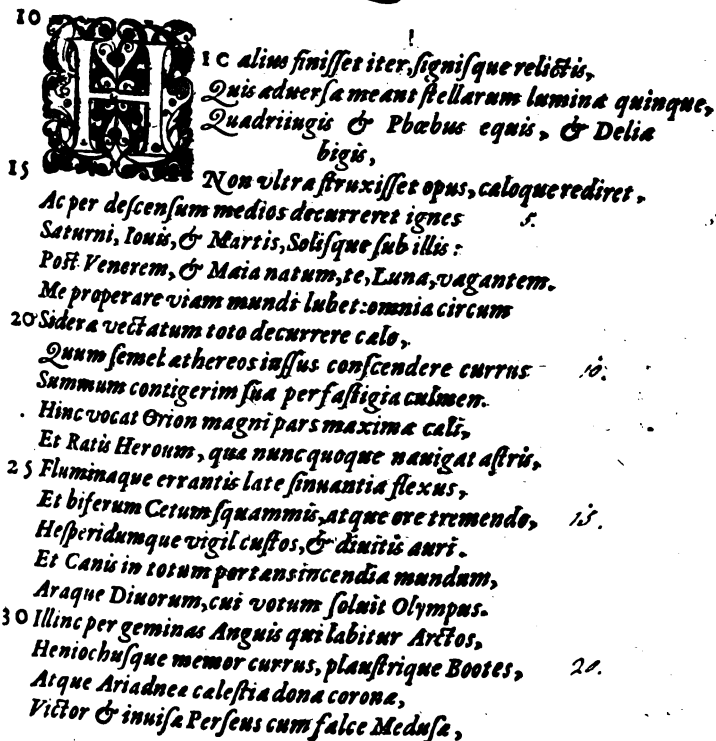 10
HIC alius finisset iter, signisque relictis,
Quis aduersa meant stellarum lumina quinque,
Quadriiugis & Phœbus equis, & Delia
bigis,
15 Non vltra struxisset opus, cæloque rediret,
Ac per descensum medios decurreret ignes 5.
Saturni, Iouis, & Martis, Solisque sub illis:
Post Venerem, & Maia natum, te, Luna, vagantem.
Me properare viam mundi lubet: omnia circum
20 Sidera vectatum toto decurrere cælo,
Quum semel æthereos iussus conscendere currus 10.
Summum contigerim sua per fastigia culmen.
Hinc vocat Orion magni pars maxima cæli,
Et Ratis Heroum, quæ nunc quoque nauigat astris,
25 Fluminaque errantis late sinuantia flexus,
Et biferum Cetum squammis, atque ore tremendo, 15.
Hesperidumque vigil custos, & diuitis auri.
Et Canis in totum portans incendia mundum,
Araque Diuorum, cui votum soluit Olympus.
30 Illinc per geminas Anguis qui labitur Arctos,
Heniochusque memor currus, plaustrique Bootes, 20.
Atque Ariadneæ cælestia dona coronæ,
Victor & inuisæ Perseus cum falce Medusæ,